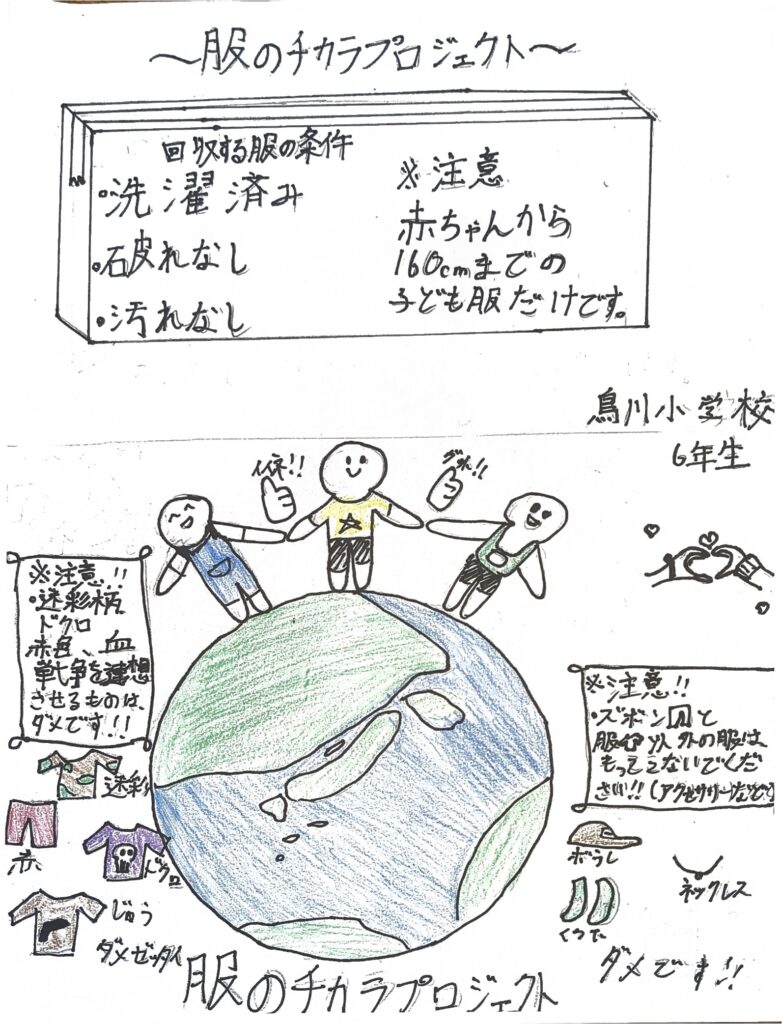 ～服のチカラプロジェクト～
回収する服の条件
・洗濯済み
・破れなし
・汚れなし
※注意
赤ちゃんから
160cmまでの
子ども服だけです。
鳥川小学校
6年生
イイネ!!
グッ!!
※注意!!
・迷彩柄
ドクロ
赤色、血
戦争を連想
させるものは、
ダメです!!
迷彩
赤
ドクロ
じゅう
ダメゼッタイ
※注意!!
・ズボンと
服以外の服は、
もってこないでくだ
さい!!(アクセサリーなど)
ぼうし
ネックレス
くつ下
ダメです!!
服のチカラプロジェクト